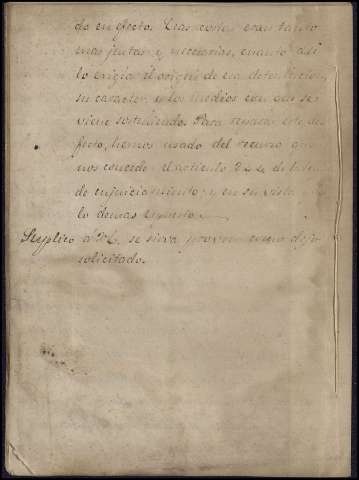 do en efecto. Las costas eran tanto
mas justas y necesarias, cuanto asi
lo exigia el origen de esa detentacion,
su caracter y los medios con que se
viene sosteniendo. Para reparar este de-
fecto, hemos usado del recurso que
nos concede el articulo de la ley
de enjuiciamiento; y en su vista y
lo demas espuesto.
Suplico á V. se sirva proveer como dejo
solicitado.